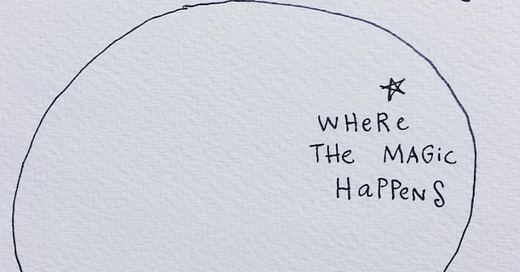 WHeRe
THe MAGiC
HaPPeNS